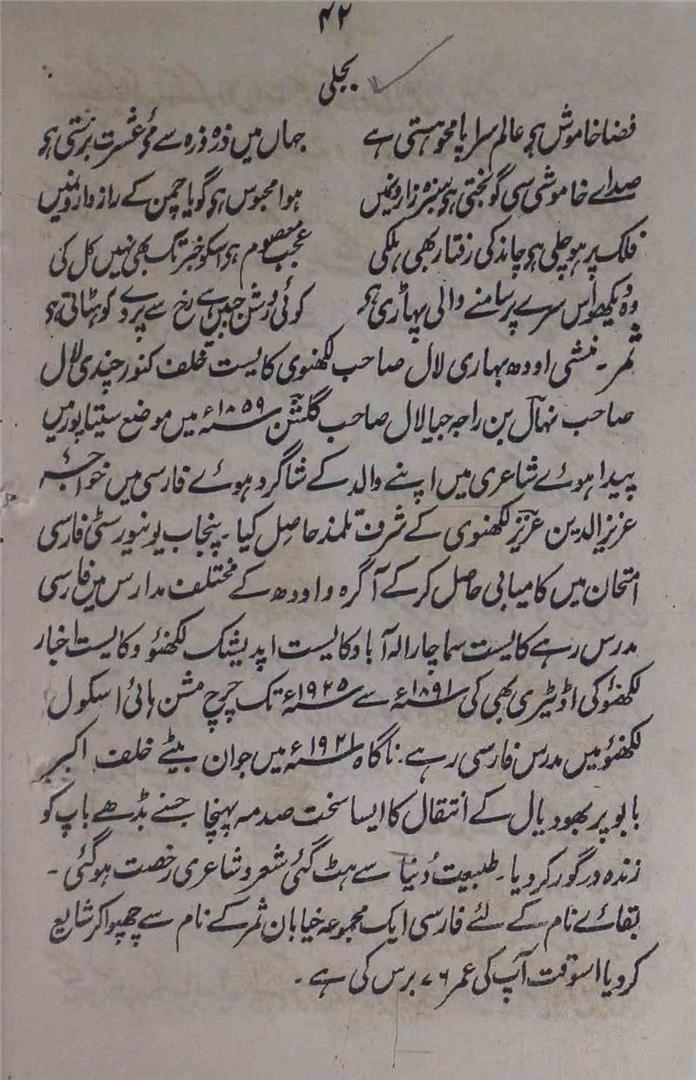 ۴۲
بجلی
فضا خاموش ہو عالم سراپا محو ہستی ہے جہاں میں ذرہ ذرہ سے مئے عشرت برستی ہو
صداے خاموشی سی گونجتی ہو سبزہ زارونمیں ہوا محبوس ہو گویا چمن کے رازدارونمیں
فلک پر ہو چلی ہو چاند کی رفتار بھی ہلکی عجب معصوم ہو اسکو خبر تک بھی نہیں کل کی
وہ دیکھو اس سرے پر سامنے والی پہاڑی ہو کوئی روشن جبیں اپنے رخ سے پردے کو ہٹاتی ہو
ثمر۔ منشی اودھ بہاری لال صاحب لکھنوی کایست خلف کنور چندی لال
صاحب نہال بن راجہ جیالال صاحب گلشن ۱۸۵۹ء میں موضع سیتاپور میں
پیدا ہوئے شاعری میں اپنے والد کے شاگرد ہوئے فارسی میں خواجہ
عزیزالدین عزیز لکھنوی کے شرف تلمذ حاصل کیا۔ پنجاب یونیورسٹی فارسی
امتحان میں کامیابی حاصل کرکے آگرہ و اودھ کے مختلف مدارس میں فارسی
مدرس رہے کایست سماچار الہ آباد وکایست اپدیشک لکھنؤ وکایست اخبار
لکھنؤ کی اڈیٹری بھی کی ۱۸۹۱ء سے ۱۹۲۵ء تک چرچ مشن ہائی اسکول
لکھنؤ میں مدرس فارسی رہے۔ ناگاہ ۱۹۲۱ء میں جوان بیٹے خلف اکبر
بابو پربھودیال کے انتقال کا ایسا سخت صدمہ پہنچا جسنے بڈھے باپ کو
زندہ درگور کردیا۔ طبیعت دُنیا سے ہٹ گئی شعر و شاعری رخصت ہوگئی۔
بقائے نام کے لئے فارسی ایک مجموعہ خیابان ثمر کے نام سے چھپوا کر شایع
کردیا اسوقت آپ کی عمر ۷۶ برس کی ہے۔